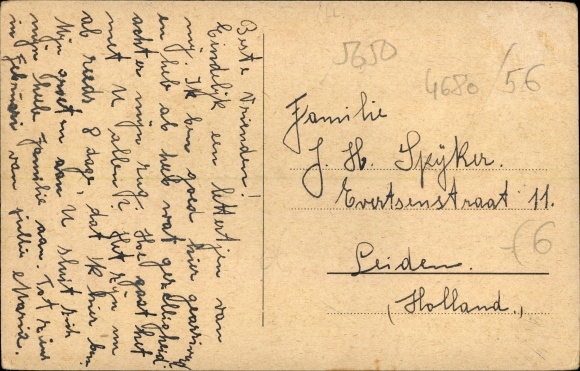 Beste Vrienden!
Eindelijk een lettertjen van
mij. Ik ben goed hier
en heb al heel wat gezelligheid
achter mijn rug. Hoe gaat het
met U allen? Het zijn nu
al reeds 8 dage, dat ik hier ben
Mijn groeten aan U sluit zich
mijn heele familie aan. Tot ziens
in Februari van jullie Maria.
5650
4680 / 56
Familie
J. H. Spÿker.
Evertsenstraat 11.
Leiden.
(Holland.)
6